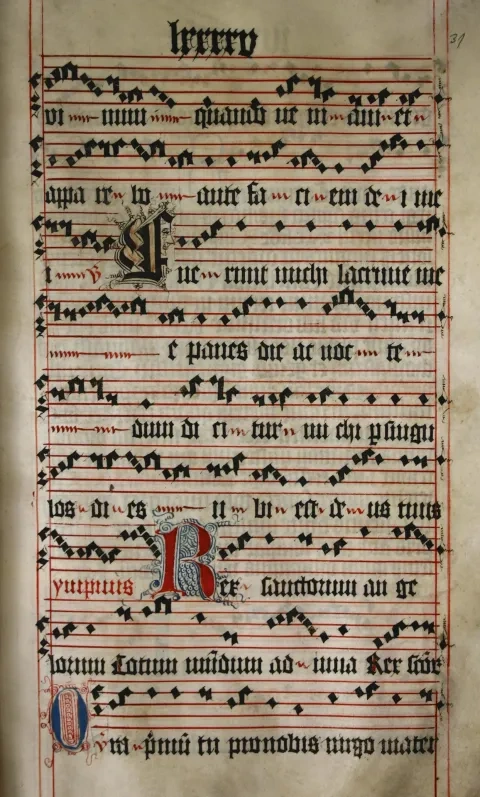 lxxxxv
31
vi mum quando ve ni am et
appa re bo ante fa ci em de i me
i V Fue runt michi lacrime me
e panes die ac noc te
dum di ci tur mi chi p singu
los di es u bi est de us tuus
Rex sanctorum an ge
lorum Totum mũdum ad iuua Rex
O ra primũ tu pro nobis virgo mater